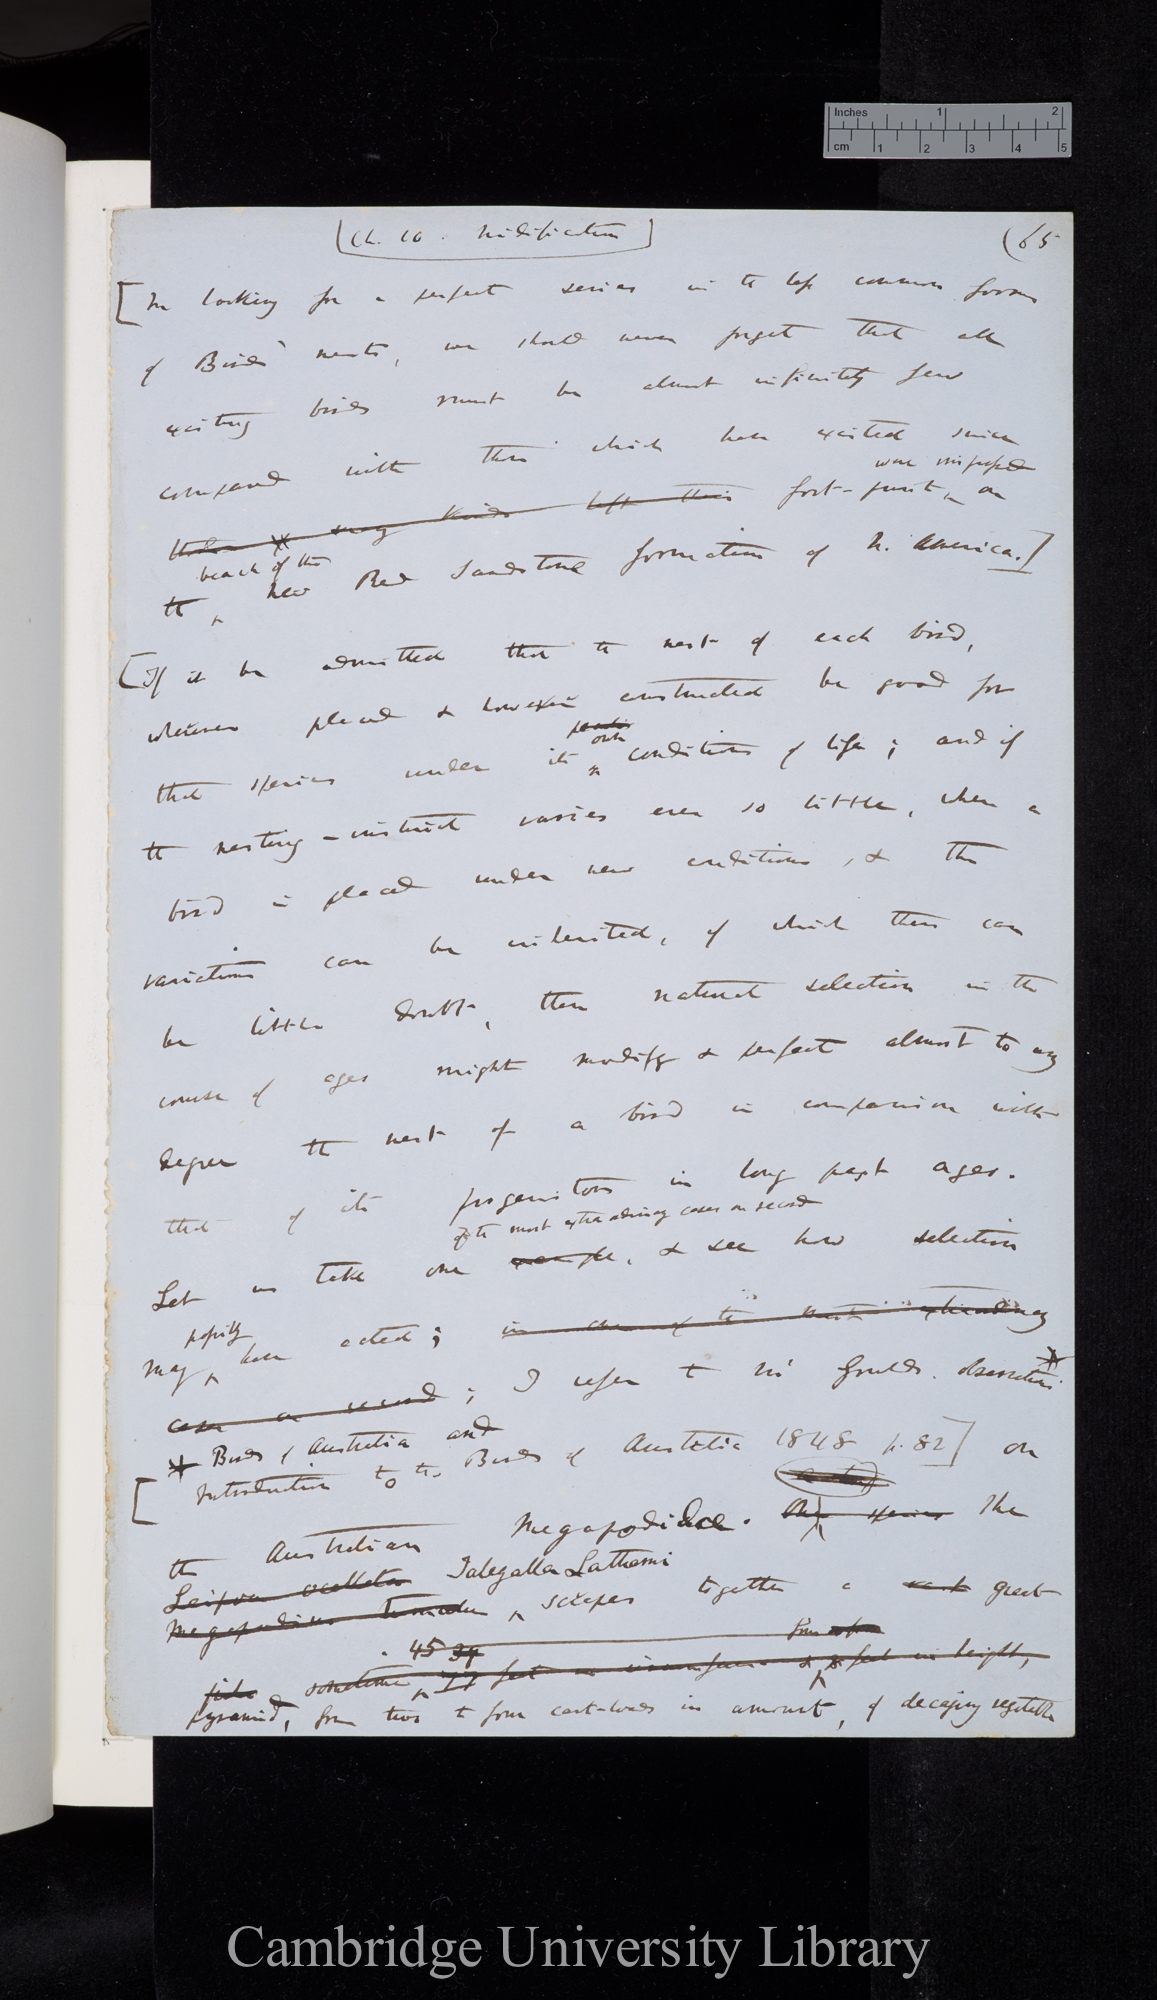 Inches 1 2
cm 1 2 3 4 5
(Ch. 10. Nidification)
(65
[In looking for a perfect series in the less common forms
of Birds' nests, we should never forget that all
existing birds must be almost infinitely few
compared with those which have existed since
were impressed
foot-prints on
beach of the
the New Red Sandstone formation of N. America.]
[If it be admitted that the nest of each bird,
wherever placed & however constructed be good for
own
that species under its conditions of life; and if
the nesting-instinct varies ever so little, when a
bird is placed under new conditions, & the
variations can be inherited, of which there can
be little doubt, then natural selection in the
course of ages might modify & perfect almost to any
degree the nest of a bird in comparison with
that of its progenitors in long past ages.
of the most extraordinary cases on record
Let us take one example, & see how selection
possibly
may have acted; in one of the most extraordinary
cases on record; I refer to Mr Gould's observations *
* Birds of Australia and
[Introduction to the Birds of Australia 1848 p. 82] on
the Australian Megapodidae. The
Leipoa ocellata Talegalla Lathami
Megapodius tumulus scrapes together a vast great
45
pile sometimes feet in circumference & feet in height,
pyramid, from two to four cart-loads in amount, of decaying vegetable
Cambridge University Library